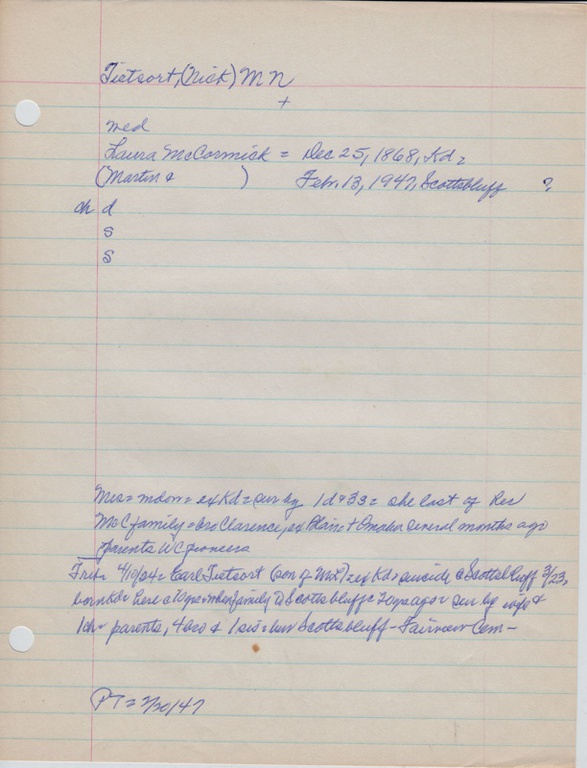 Tietsort, (Nick) M N
+
wed
Laura McCormick = Dec 25, 1868, Kd =
(Martin & ) Feb. 13, 1947, Scottsbluff ?
ch d
S
S
Mrs = mdow = ex Kd = sur by 1 d & 3 s = she last of Rev
McC family = bro Clarence, ex Blair + Omaha several months ago
parents WC pioneers
Trib 4/10/24 = Earl Tietsort (son of ML) = ex Kd = suicide @ Scottsbluff 3/23,
born Kd = here @ 10 yrs when family to Scottsbluff = 20 yrs ago = sur by wife &
1 ch = parents, 4 bro & 1 sis = bur Scottsbluff - Fairview Cem -
PT = 2/20/47